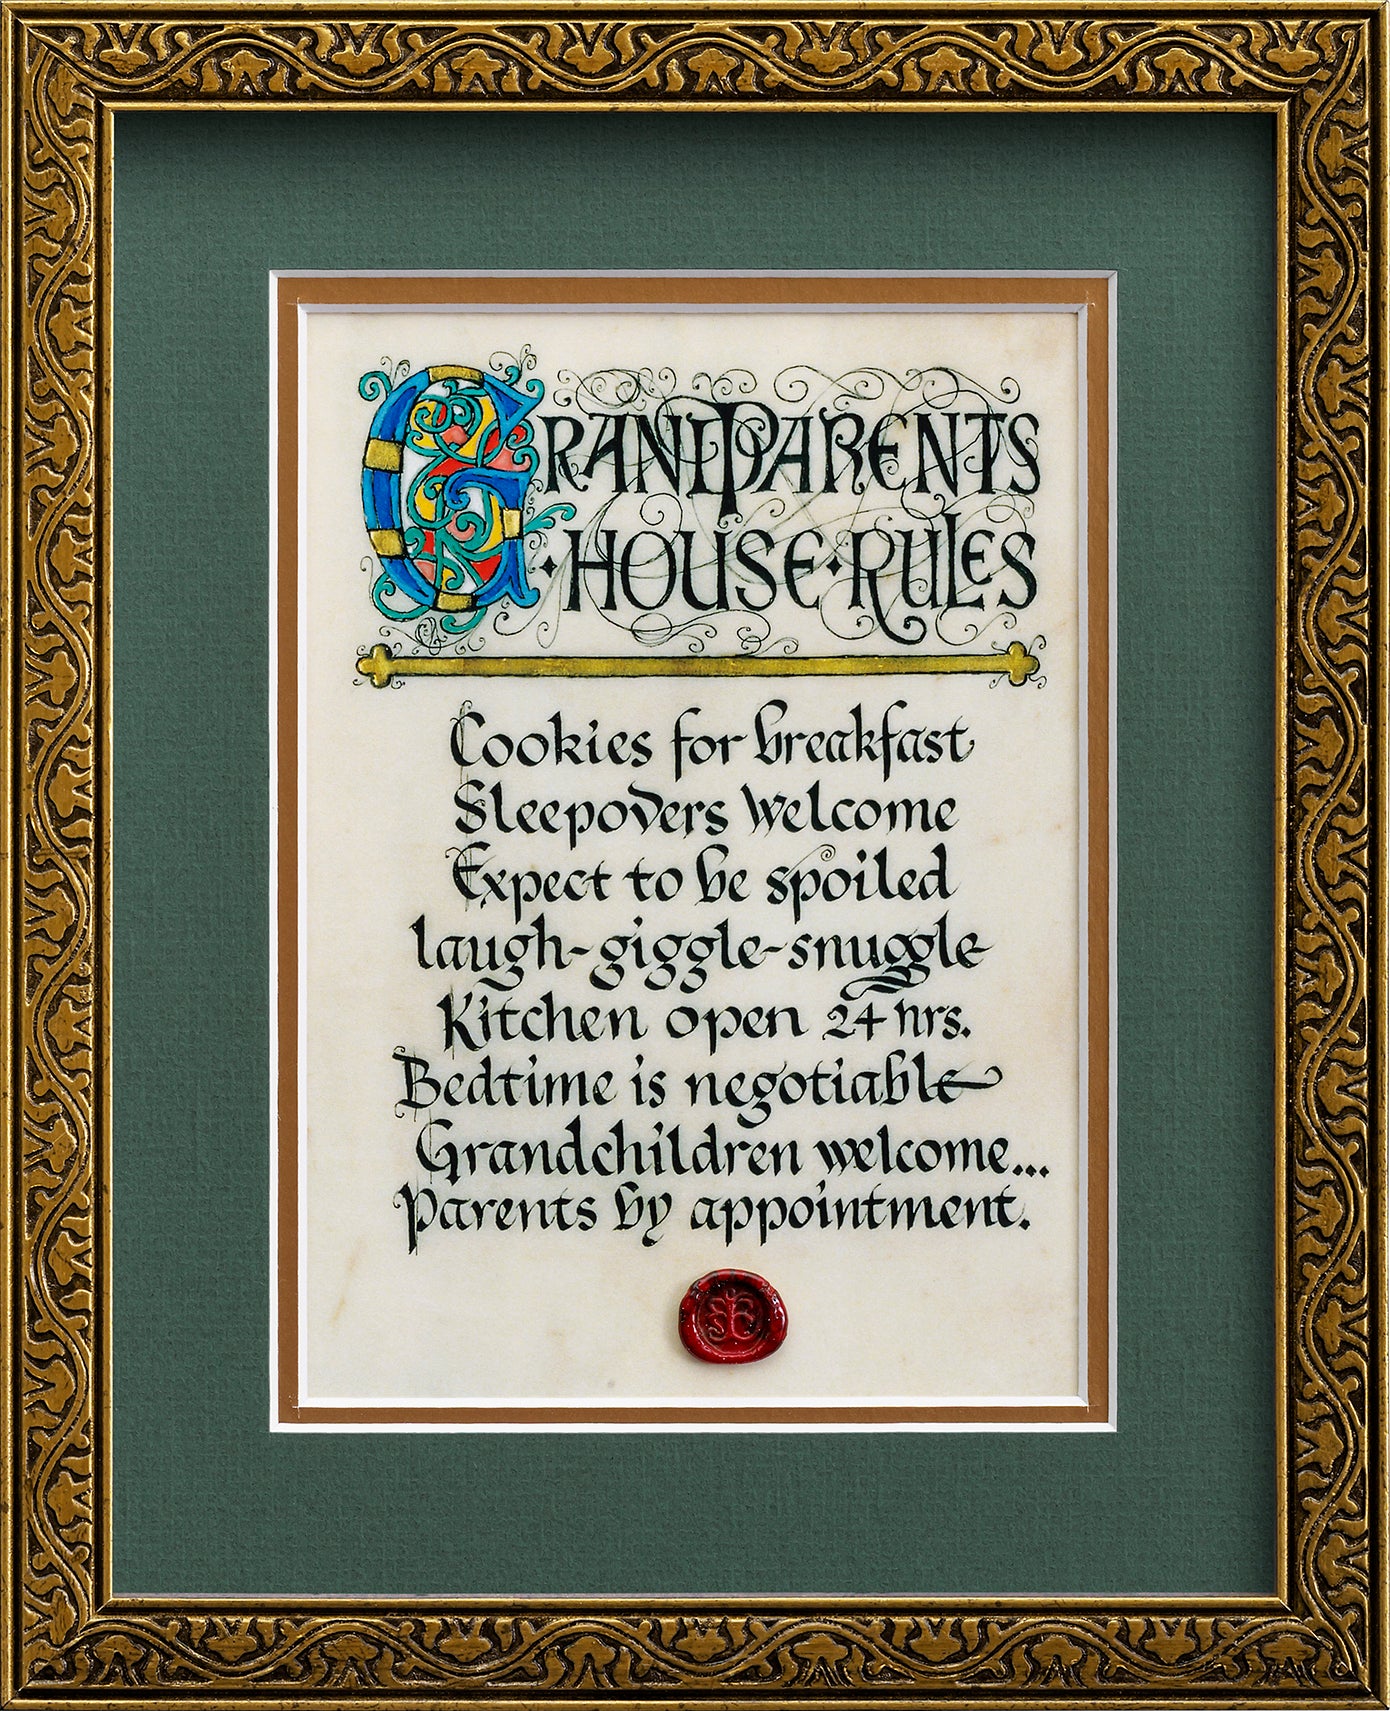 GRANDPARENTS
·HOUSE·RULES
Cookies for breakfast
Sleepovers Welcome
Expect to be spoiled
laugh-giggle-snuggle
Kitchen open 24 hrs.
Bedtime is negotiable
Grandchildren welcome...
Parents by appointment.